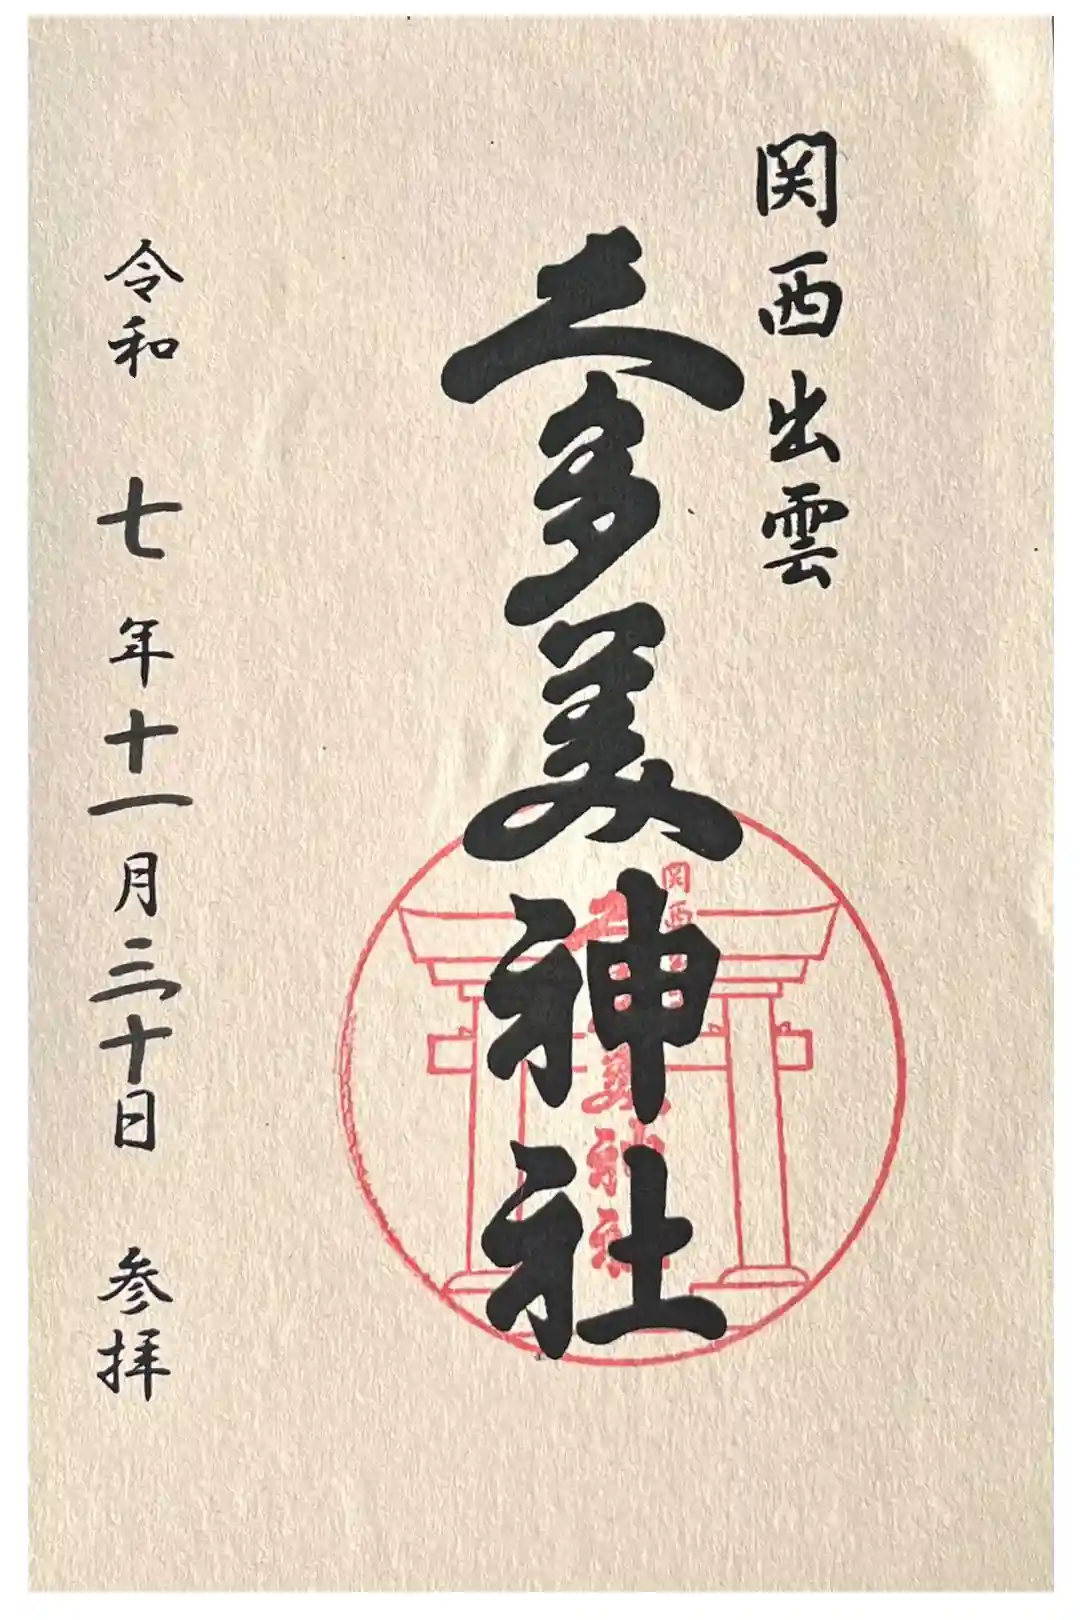 関西出雲
久多美神社
関西
美神社
令和 七 年十一月三十日 参拝